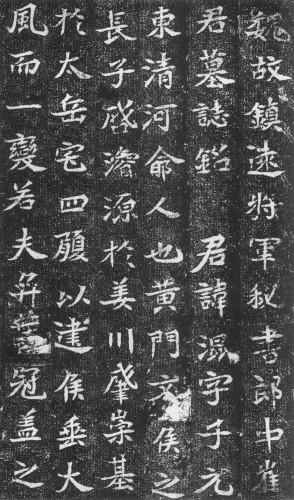 魏故鎮遠将軍秘書郎中崔
君墓誌銘 君諱混字子元
東清河俞人也黃門文侯之
長子啓濬源於姜川肇崇基
於太岳宅四履以建侯垂大
風而一變若夫弈葉冠盖之